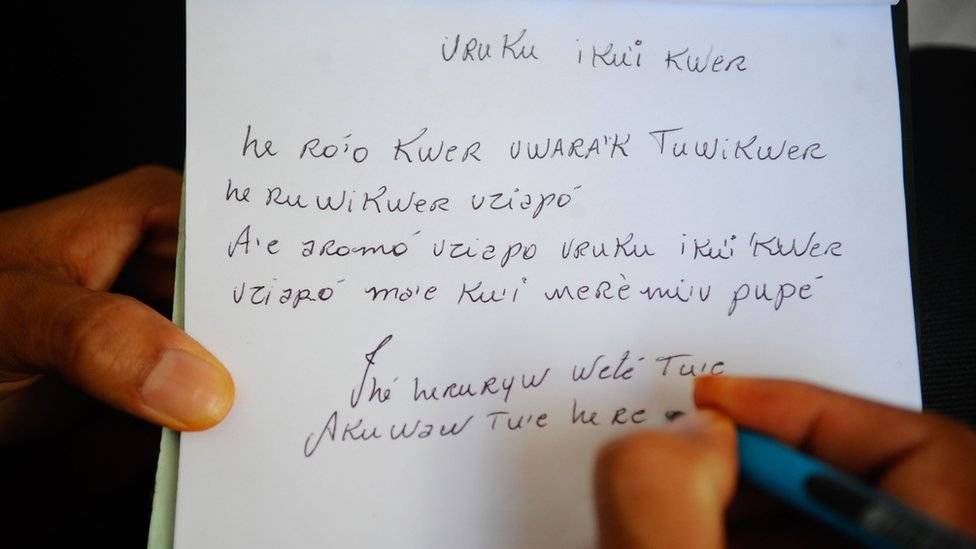 URUKU iKU'i KWER
he RO'O KWER UWARA'K TUWiKWER
he RUWiKWER UZiAPÓ
A'E AROMÓ UZiAPO URUKU iKU'i 'KWER
UZiAPÓ MA'E KU'i MERÈ Mi'U PUPÉ
Ihé heRURYW WETÉ TU'E
AKUWAW TU'E hERE